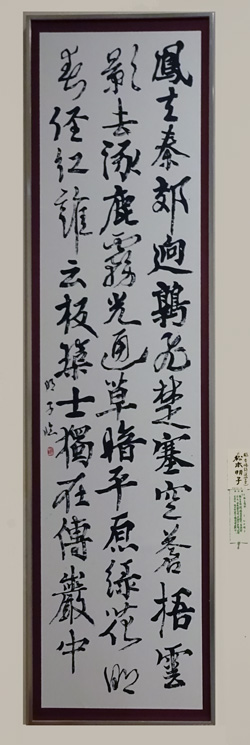 鳳去秦郊迥鶉飛楚塞空蒼梧雲
影去涿鹿霧光通草暗平原緑花明
春徑紅誰云板築士獨在傅巖中
明子臨
松本明子